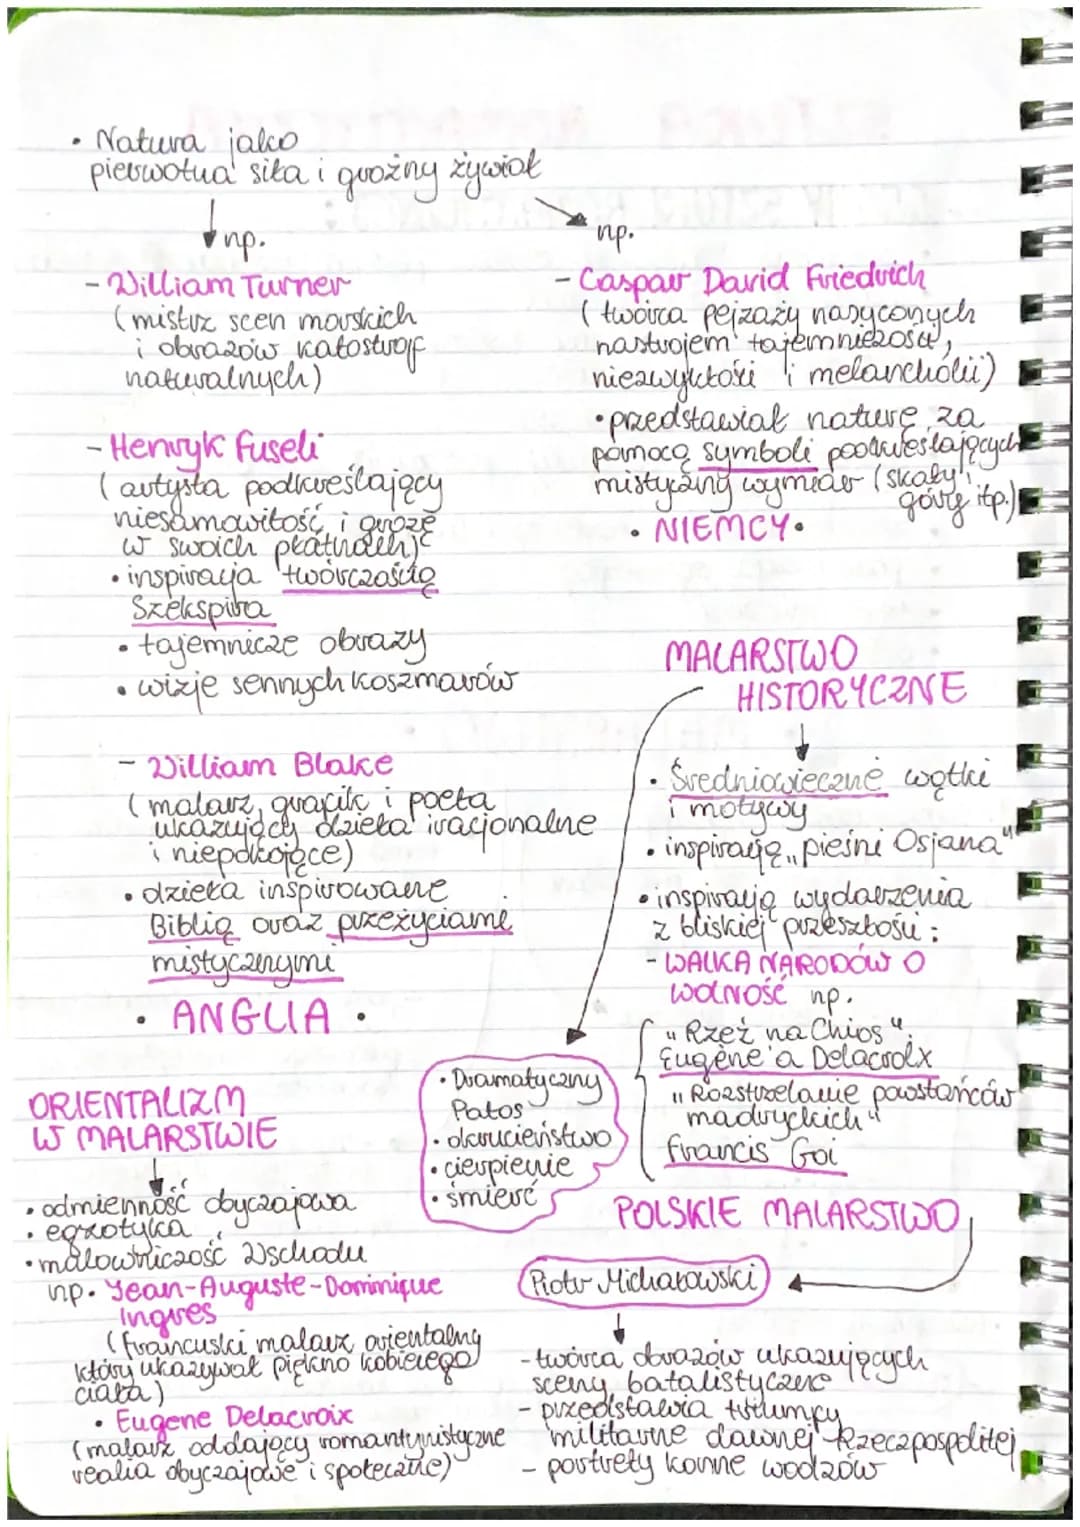 • Natura jako
pierwotna siła i groźny żywioł
np.
- William Turner
(mistrz scen morskich
i obrazów katastrof
naturalnych)
- Henryk Fuseli
(artysta podkreślający
niesamowitość i grozę
w swoich płatnach)
• inspiracja twórczością
Szekspira
• tajemnicze obrazy
• wizje sennych koszmarów
- William Blake
(malarz, grafik i poeta
ukazujący dzieła iracjonalne
i niepokojące)
• dzieła inspirowane
Biblią oraz przeżyciami
mistycznymi
• ANGLIA •
np.
- Caspar David Friedrich
(twórca pejzaży nasyconych
nastrojem tajemniczości,
niezwykłości i melancholii)
• przedstawiał naturę za
pomocą symboli podkreślających
mistyczny wymiar (skały,
góry itp.)
• NIEMCY •
MALARSTWO
HISTORYCZNE
• Średniowieczne wątki
i motywy
• inspirację „pieśni Osjana"
• inspirają wydarzenia
z bliskiej przeszłości :
- WALKA NARODÓW O
WOLNOŚĆ np.
„Rzeź na Chios"
Eugène'a Delacroix
„Rozstrzelanie powstańców
madryckich"
Francis Goi
• Dramatyczny
Patos
• okrucieństwo
• cierpienie
• śmierć
ORIENTALIZM
W MALARSTWIE
• odmienność obyczajowa
• egzotyka
• malowniczość Wschodu
np. Jean-Auguste-Dominique
Ingres
(francuski malarz orientalny
który ukazywał piękno kobiecego
ciała)
• Eugene Delacroix
(malarz oddający romantynistyczne
realia obyczajowe i społeczne)
POLSKIE MALARSTWO
Piotr Michałowski
- twórca obrazów ukazujących
sceny batalistyczne
- przedstawia triumfy
militarne dawnej Rzeczpospolitej
- portrety konne wodzów